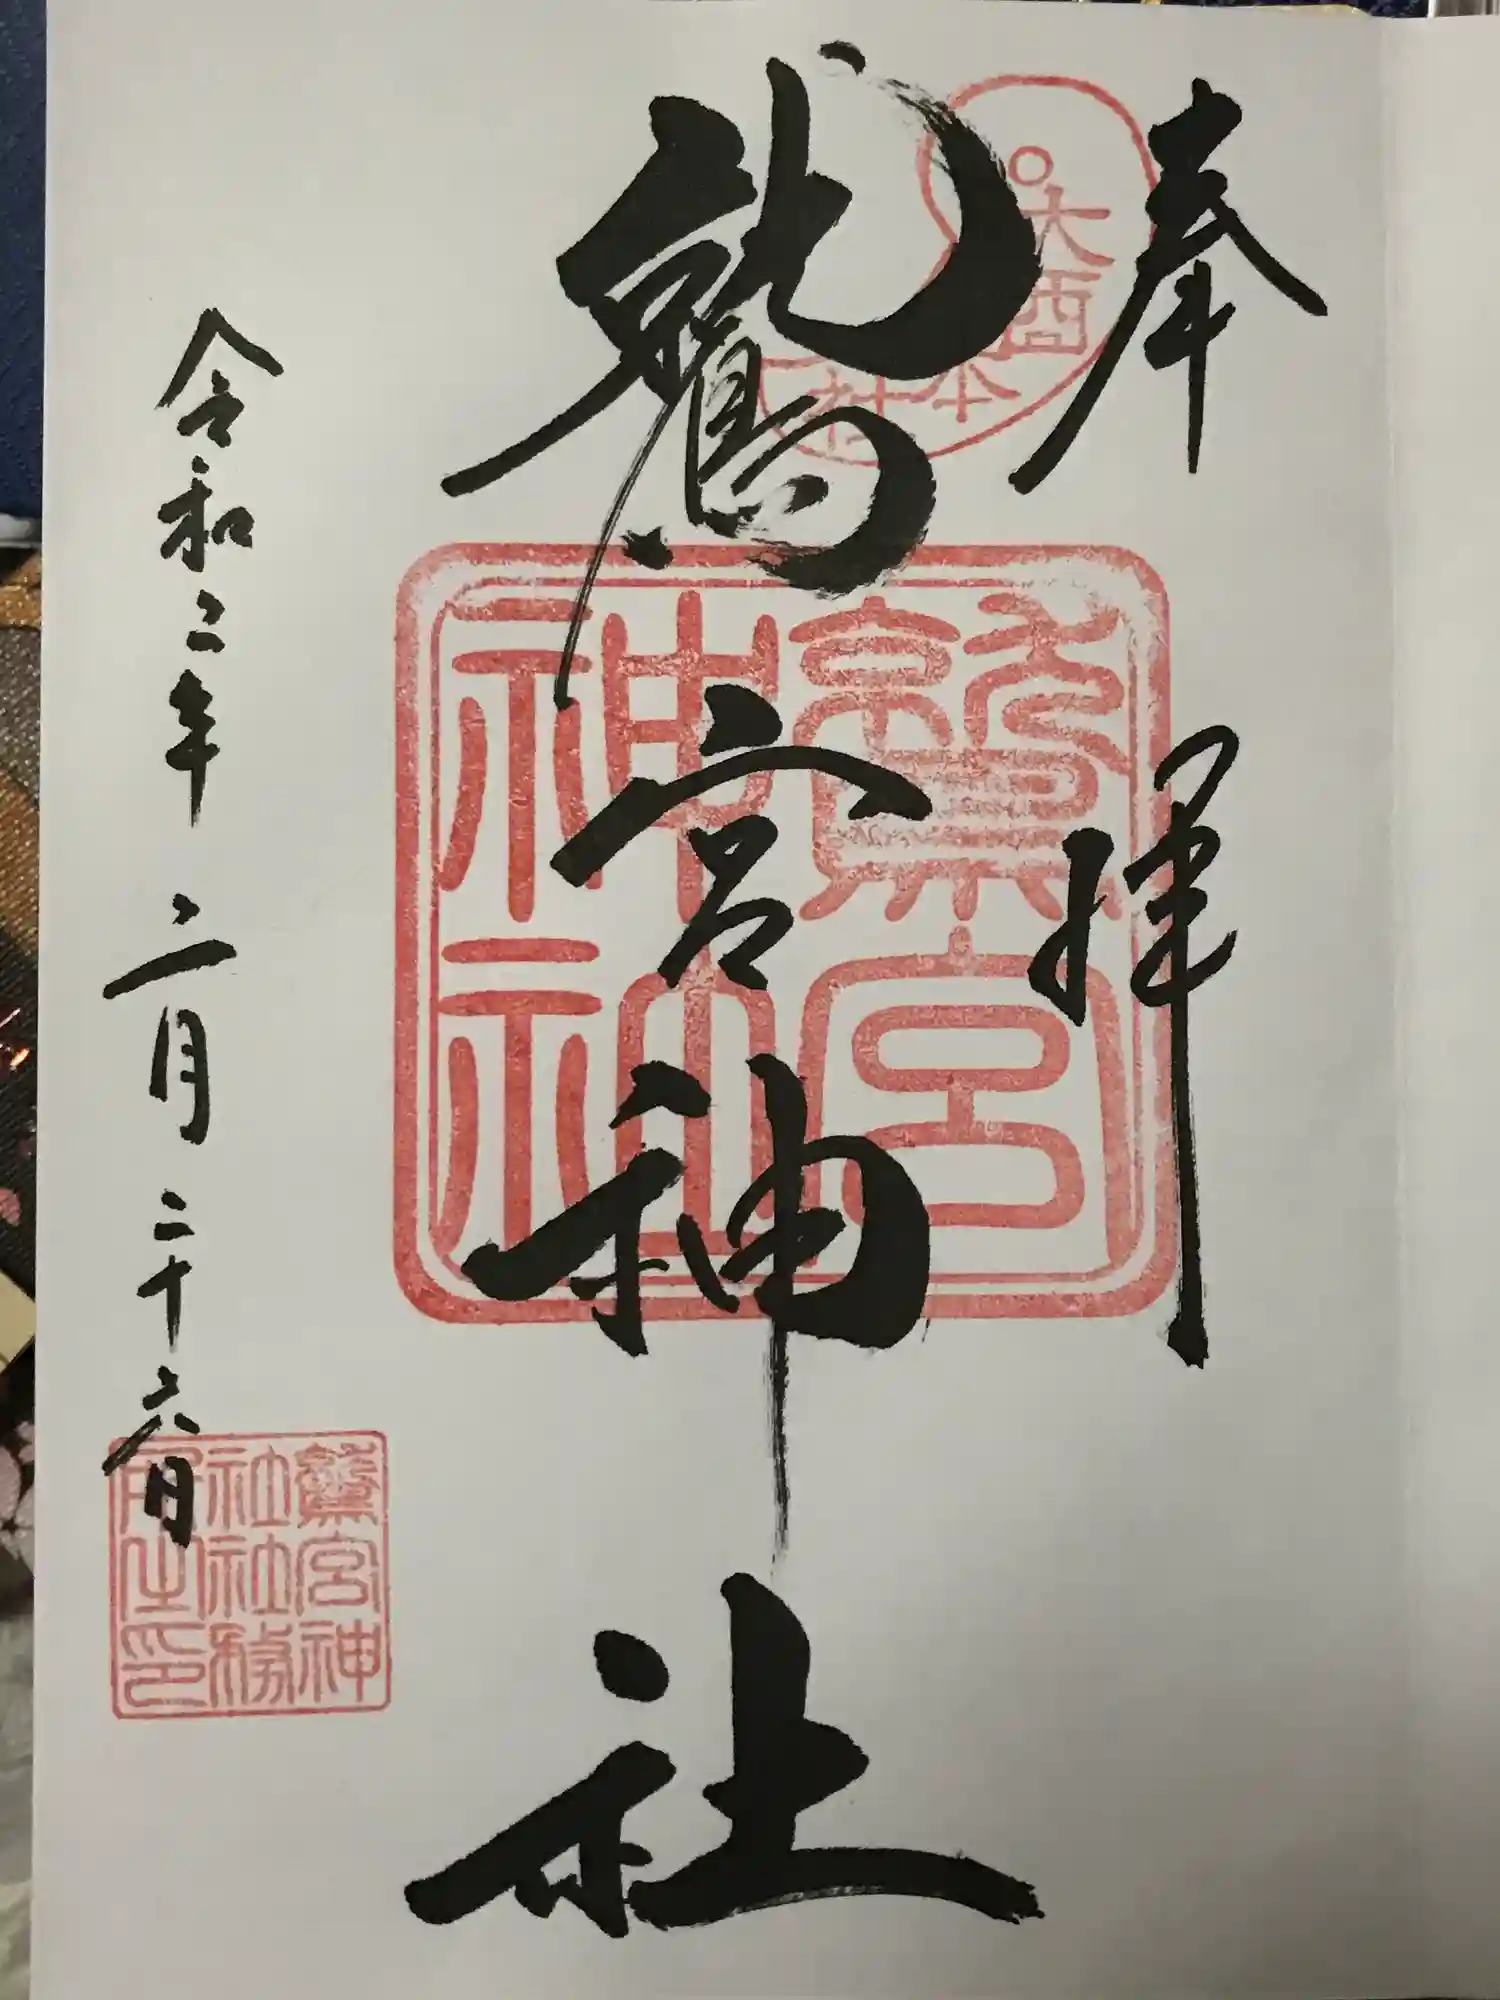 奉拝
大酉
本社
鷲宮神社
鷲宮神社
令和二年二月二十六日
鷲宮神社社務所之印